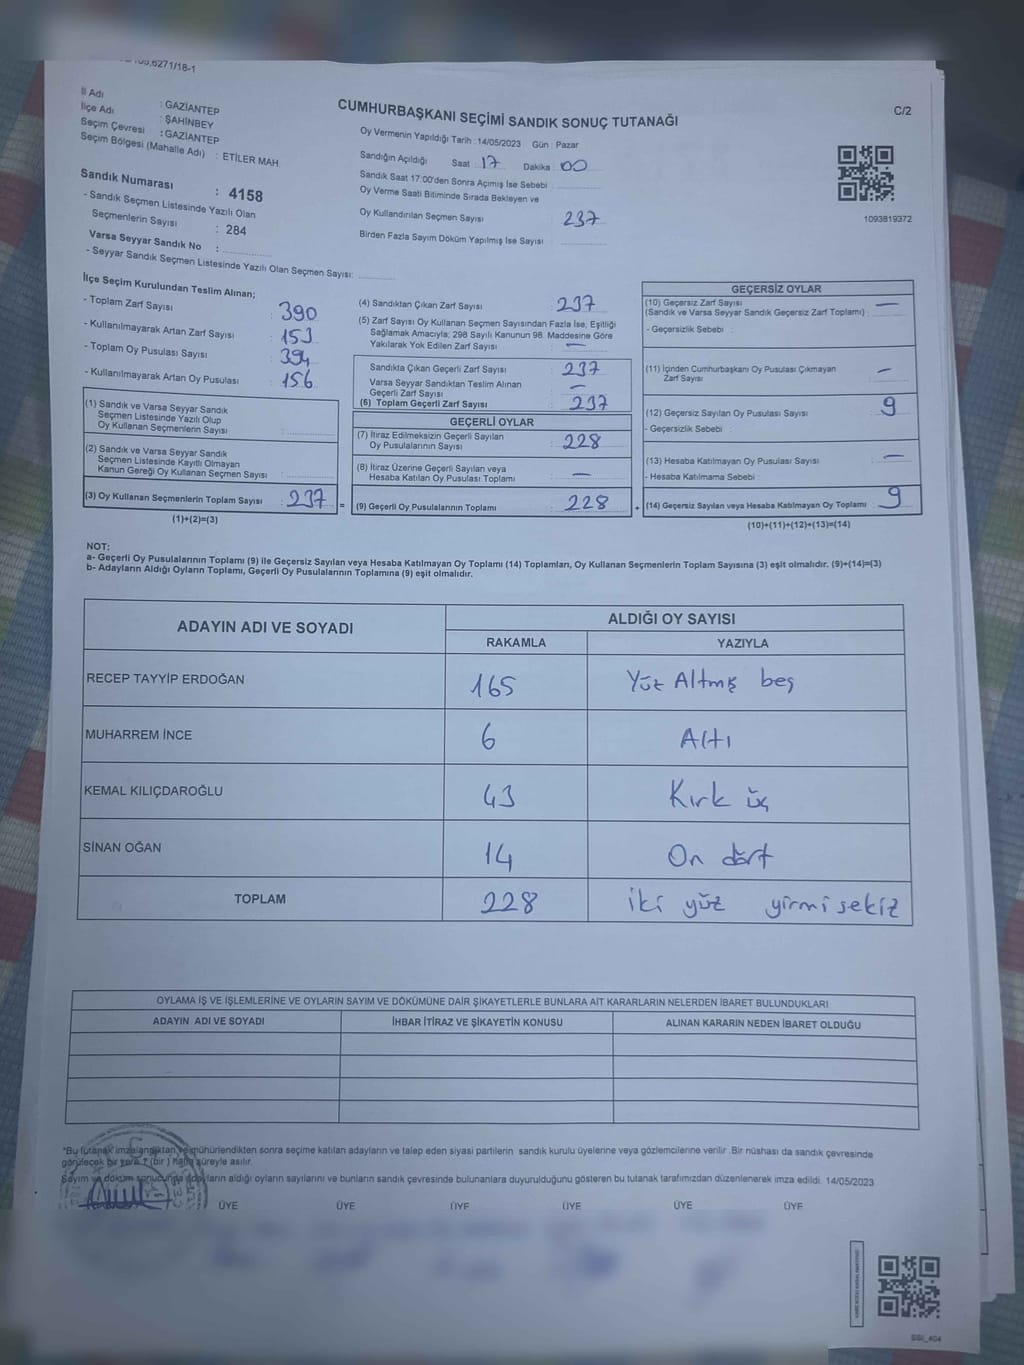 6271/18-1
İl Adı : GAZİANTEP
İlçe Adı : ŞAHİNBEY
Seçim Çevresi : GAZİANTEP
Seçim Bölgesi (Mahalle Adı) : ETİLER MAH
CUMHURBAŞKANI SEÇİMİ SANDIK SONUÇ TUTANAĞI
C/2
Oy Vermenin Yapıldığı Tarih :14/05/2023 Gün Pazar
Sandığın Açıldığı Saat 17 Dakika 00
Sandık Saat 17:00'den Sonra Açımış İse Sebebi
Oy Verme Saati Bitiminde Sırada Bekleyen ve
Oy Kullandırılan Seçmen Sayısı 237
Birden Fazla Sayım Döküm Yapılmış İse Sayısı
1093819372
Sandık Numarası : 4158
- Sandık Seçmen Listesinde Yazılı Olan
Seçmenlerin Sayısı : 284
Varsa Seyyar Sandık No :
- Seyyar Sandık Seçmen Listesinde Yazılı Olan Seçmen Sayısı:
İlçe Seçim Kurulundan Teslim Alınan;
- Toplam Zarf Sayısı 390
- Kullanılmayarak Artan Zarf Sayısı : 153
- Toplam Oy Pusulası Sayısı : 394
- Kullanılmayarak Artan Oy Pusulası : 156
(1) Sandık ve Varsa Seyyar Sandık
Seçmen Listesinde Yazılı Olup
Oy Kullanan Seçmenlerin Sayısı :
(2) Sandık ve Varsa Seyyar Sandık
Seçmen Listesinde Kayıtlı Olmayan
Kanun Gereği Oy Kullanan Seçmen Sayısı :
(3) Oy Kullanan Seçmenlerin Toplam Sayısı : 237 =
(1)+(2)=(3)
(4) Sandıktan Çıkan Zarf Sayısı : 237
(5) Zarf Sayısı Oy Kullanan Seçmen Sayısından Fazla İse, Eşitliği
Sağlamak Amacıyla; 298 Sayılı Kanunun 98. Maddesine Göre
Yakılarak Yok Edilen Zarf Sayısı : —
Sandıkta Çıkan Geçerli Zarf Sayısı : 237
Varsa Seyyar Sandıktan Teslim Alınan
Geçerli Zarf Sayısı : —
(6) Toplam Geçerli Zarf Sayısı : 237
GEÇERLİ OYLAR
(7) İtiraz Edilmeksizin Geçerli Sayılan
Oy Pusulalarının Sayısı : 228
(8) İtiraz Üzerine Geçerli Sayılan veya
Hesaba Katılan Oy Pusulası Toplamı : —
(9) Geçerli Oy Pusulalarının Toplamı : 228 +
GEÇERSİZ OYLAR
(10) Geçersiz Zarf Sayısı
(Sandık ve Varsa Seyyar Sandık Geçersiz Zarf Toplamı) : —
- Geçersizlik Sebebi :
(11) İçinden Cumhurbaşkanı Oy Pusulası Çıkmayan
Zarf Sayısı : —
(12) Geçersiz Sayılan Oy Pusulası Sayısı : 9
- Geçersizlik Sebebi :
(13) Hesaba Katılmayan Oy Pusulası Sayısı : —
- Hesaba Katılmama Sebebi :
(14) Geçersiz Sayılan veya Hesaba Katılmayan Oy Toplamı : 9
(10)+(11)+(12)+(13)=(14)
NOT:
a- Geçerli Oy Pusulalarının Toplamı (9) ile Geçersiz Sayılan veya Hesaba Katılmayan Oy Toplamı (14) Toplamları, Oy Kullanan Seçmenlerin Toplam Sayısına (3) eşit olmalıdır. (9)+(14)=(3)
b- Adayların Aldığı Oyların Toplamı, Geçerli Oy Pusulalarının Toplamına (9) eşit olmalıdır.
ADAYIN ADI VE SOYADI
ALDIĞI OY SAYISI
RAKAMLA YAZIYLA
RECEP TAYYİP ERDOĞAN 165 Yüz Altmış beş
MUHARREM İNCE 6 Altı
KEMAL KILIÇDAROĞLU 43 Kırk üç
SİNAN OĞAN 14 On dört
TOPLAM 228 iki yüz yirmi sekiz
OYLAMA İŞ VE İŞLEMLERİNE VE OYLARIN SAYIM VE DÖKÜMÜNE DAİR ŞİKAYETLERLE BUNLARA AİT KARARLARIN NELERDEN İBARET BULUNDUKLARI
ADAYIN ADI VE SOYADI İHBAR İTİRAZ VE ŞİKAYETİN KONUSU ALINAN KARARIN NEDEN İBARET OLDUĞU
*Bu tutanak imzalandıktan ve mühürlendikten sonra seçime katılan adayların ve talep eden siyasi partilerin sandık kurulu üyelerine veya gözlemcilerine verilir .Bir nüshası da sandık çevresinde
görülecek bir yere 7 (bir ) hafta süreyle asılır.
Sayım ve döküm sonucunda adayların aldığı oyların sayılarını ve bunların sandık çevresinde bulunanlara duyurulduğunu gösteren bu tutanak tarafımızdan düzenlenerek imza edildi. 14/05/2023
ÜYE ÜYE ÜYE ÜYE ÜYE ÜYE